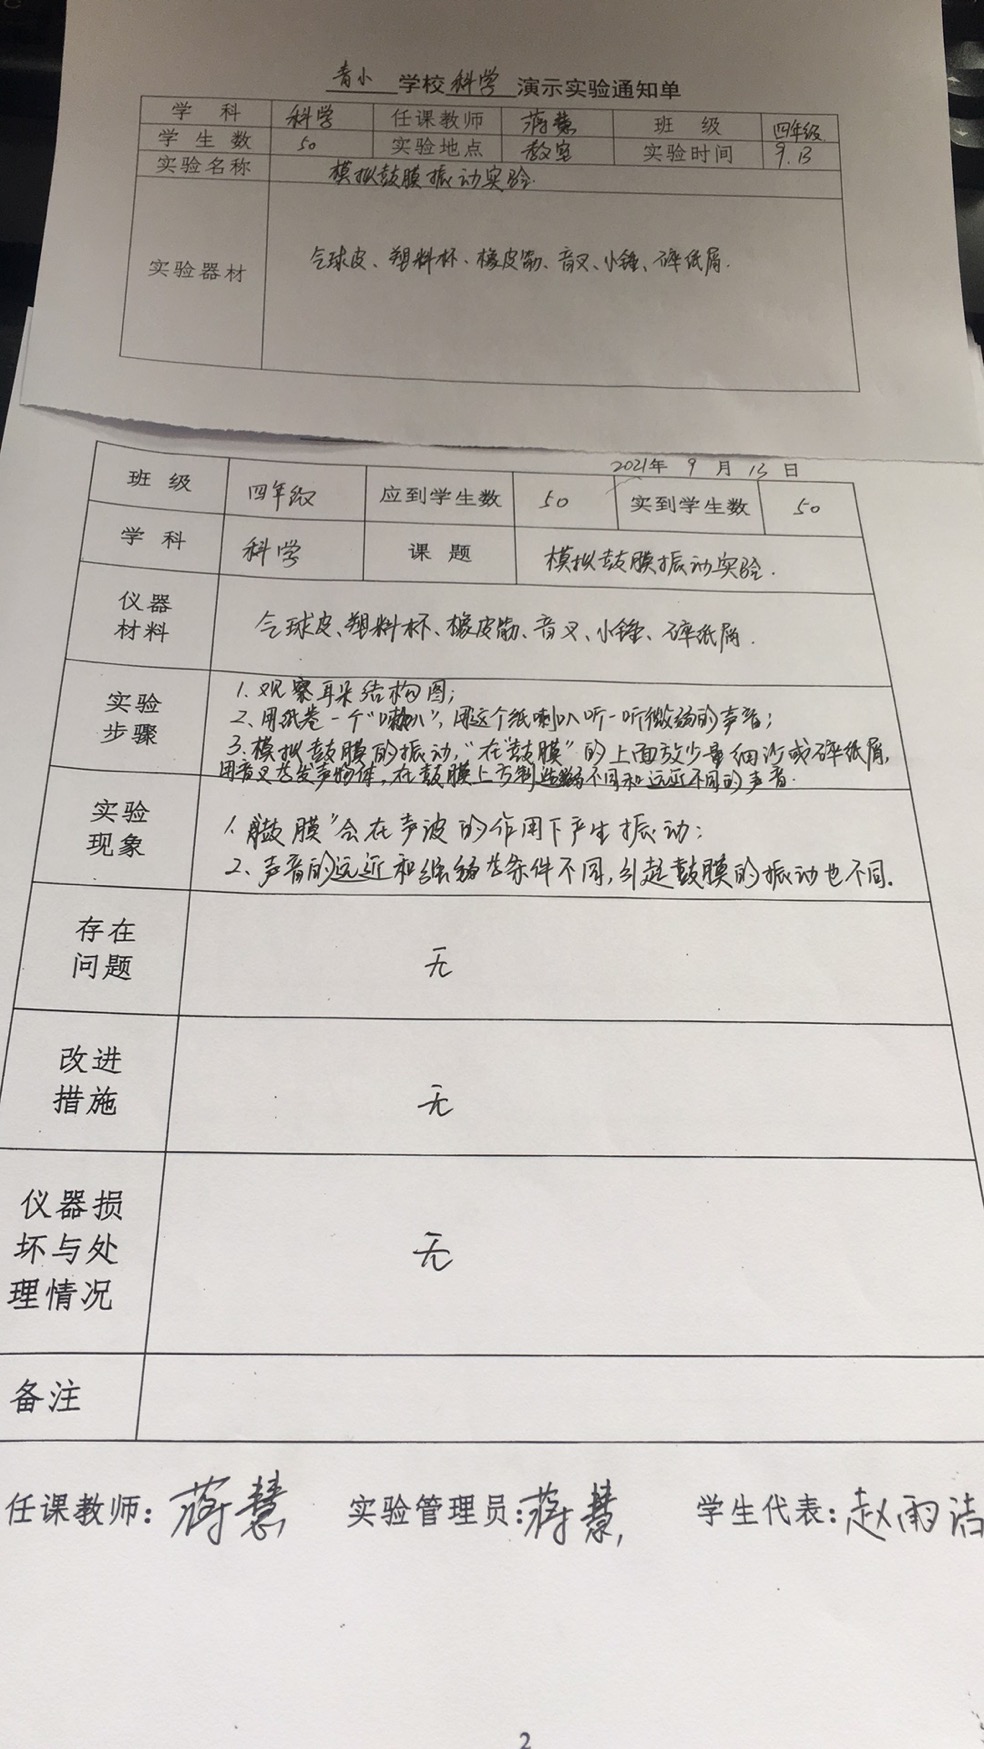 青小 学校 科学 演示实验通知单
学 科 科学 任课教师 蒋慧 班 级 四年级
学 生 数 50 实验地点 教室 实验时间 9.13
实验名称 模拟鼓膜振动实验.
实验器材 气球皮、塑料杯、橡皮筋、音叉、小锤、碎纸屑.
2021年 9 月 13 日
班 级 四年级 应到学生数 50 实到学生数 50
学 科 科学 课 题 模拟鼓膜振动实验.
仪器
材料
气球皮、塑料杯、橡皮筋、音叉、小锤、碎纸屑.
实验
步骤
1.观察耳朵结构图;
2、用纸卷一个“喇叭”,用这个纸喇叭听一听微弱的声音;
3.模拟鼓膜的振动,“在“鼓膜”的上面放少量细沙或碎纸屑,
用音叉为发声物体,在鼓膜上方制造强弱不同和远近不同的声音.
实验
现象
1.“鼓膜”会在声波的作用下产生振动;
2、声音的远近和强弱等条件不同,引起鼓膜的振动也不同.
存在
问题
无
改进
措施
无
仪器损
坏与处
理情况
无
备注
任课教师: 蒋慧 实验管理员: 蒋慧 学生代表: 赵雨洁
2